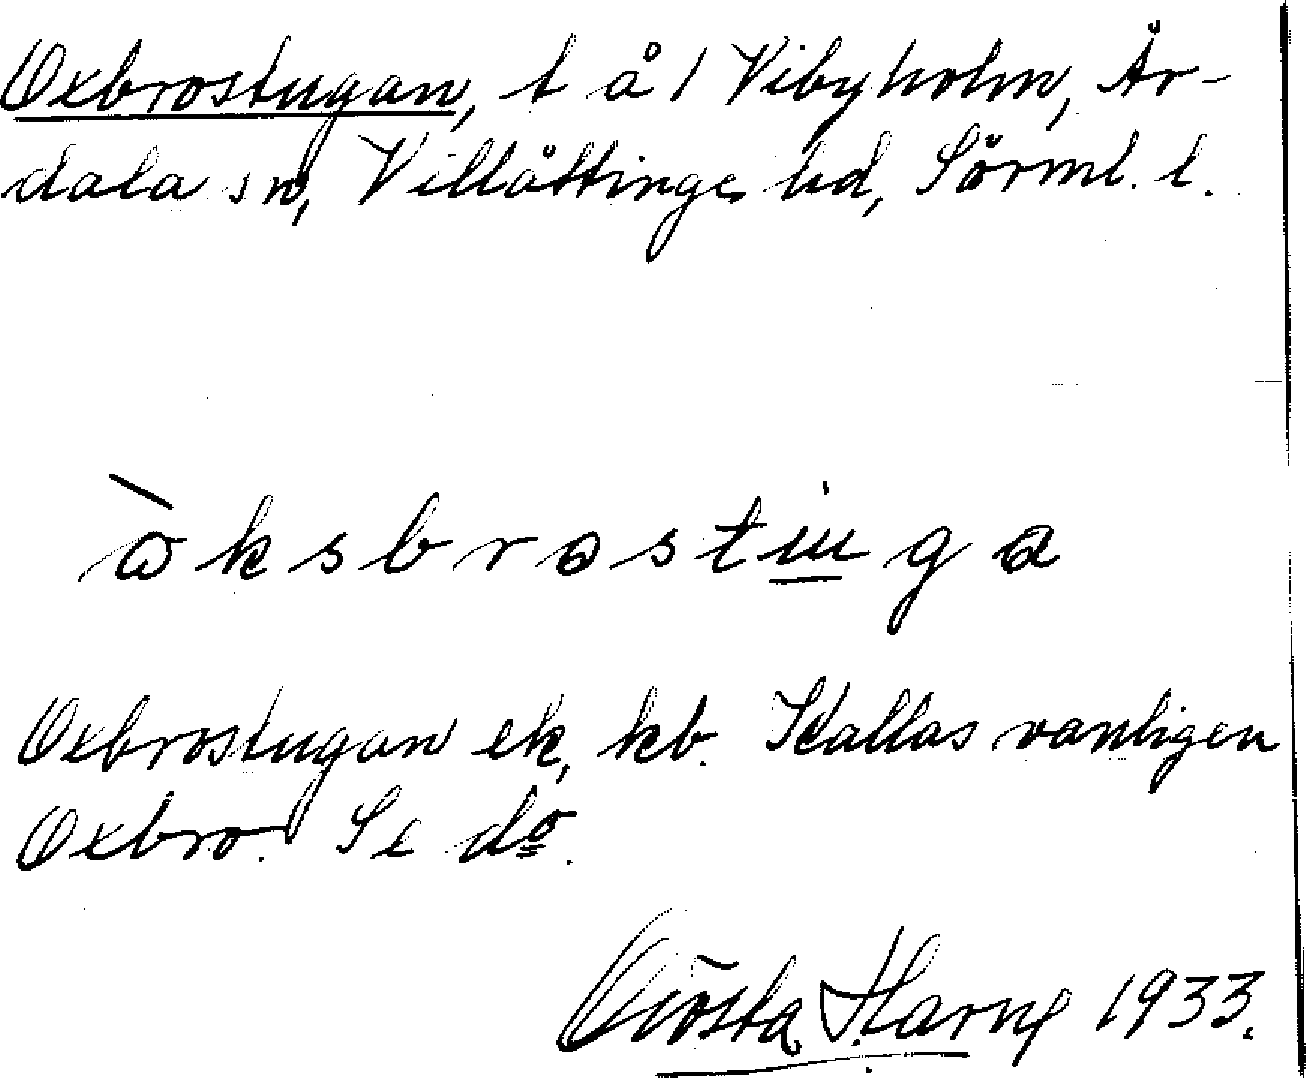 Oxbrostugan, t å / Vibyholm, År-
dala sn, Villåttinge hd, Sörml. l.
òksbrostuga
Oxbrostugan ek, kb. Kallas vanligen
Oxbro. Se do.
Gösta Harng 1933.